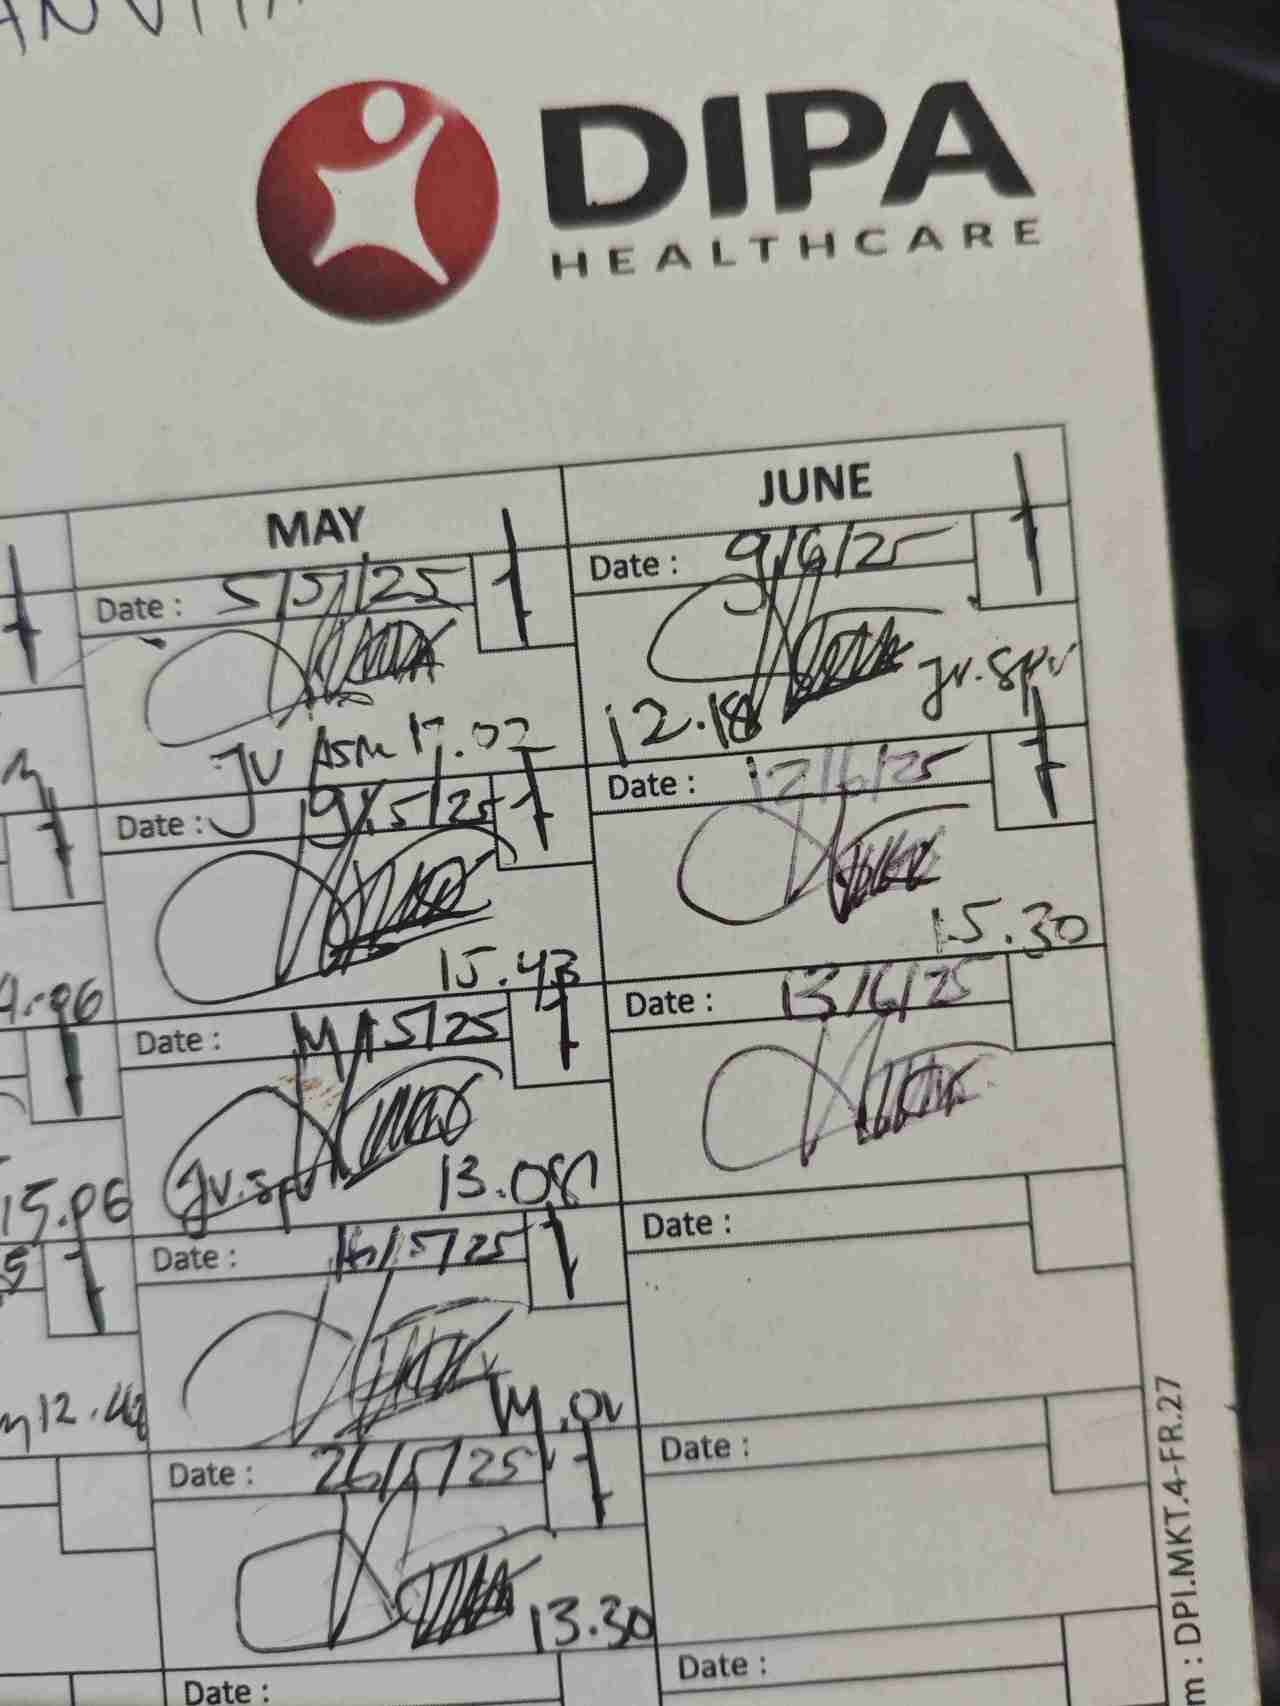 DIPA
HEALTHCARE
MAY
JUNE
Date : 5/5/25
JV ASM 17.02
Date : 9/6/25
12.18 jv.spv
Date : 9/5/25
15.43
Date : 12/6/25
15.30
4.06
Date : 14/5/25
jv.spv 13.08
Date : 13/6/25
15.06
Date : 16/5/25
14.01
Date :
12.42
Date : 26/5/25
13.30
Date :
Date :
Date :
m : DPI.MKT.4-FR.27